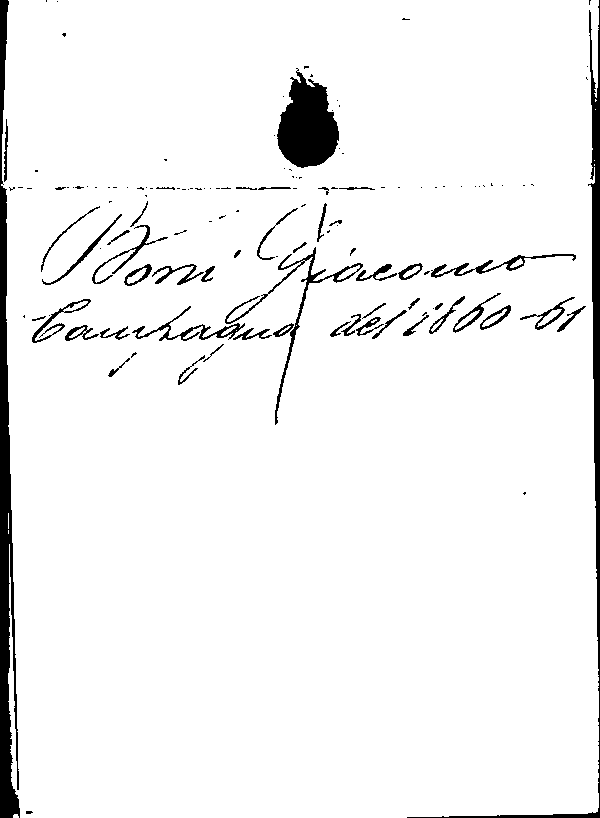 Boni Giacomo
Campagna del 1860-61